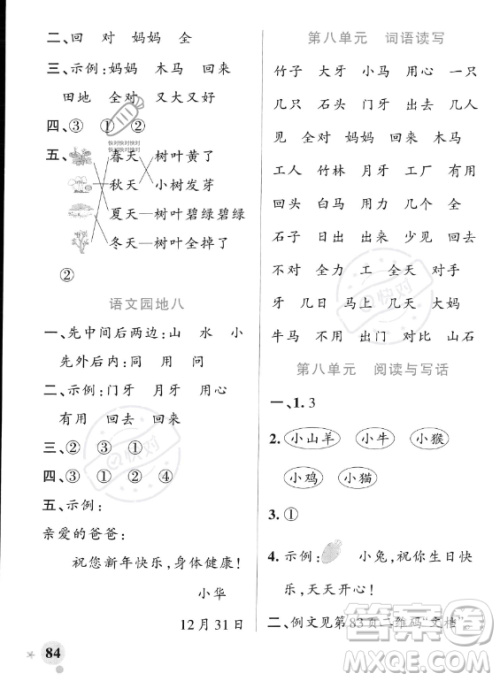 二、回 对 妈妈 全
三、示例:妈妈 木马 回来
田地 全对 又大又好
四、③ ① ②
五、
春天 树叶黄了
秋天 小树发芽
夏天 树叶碧绿碧绿
冬天 树叶全掉了
②
语文园地八
一、先中间后两边:山 水 小
先外后内:同 用 问
二、示例:门牙 月牙 用心
有用 回去 回来
三、② ③ ①
四、③ ① ② ④
五、示例:
亲爱的爸爸:
祝您新年快乐,身体健康!
小华
12月31日
84
第八单元 词语读写
竹子 大牙 小马 用心 一只
几只 石头 门牙 出去 几人
见 全对 妈妈 回来 木马
工人 竹林 月牙 工厂 有用
回头 白马 用力 出力 回去
石子 日出 出来 少见 回来
不对 全力 工人 全天 对手
牙 几日 马上 几天 大妈
牛马 不用 出门 对比 山石
第八单元 阅读与写话
一、1. 3
2. 小山羊 小牛 小猴
小鸡 小猫
3. ①
4. 示例: 小兔,祝你生日快
乐,天天开心!
二、例文见第83页二维码“文档”
答案圈
MXQE.COM